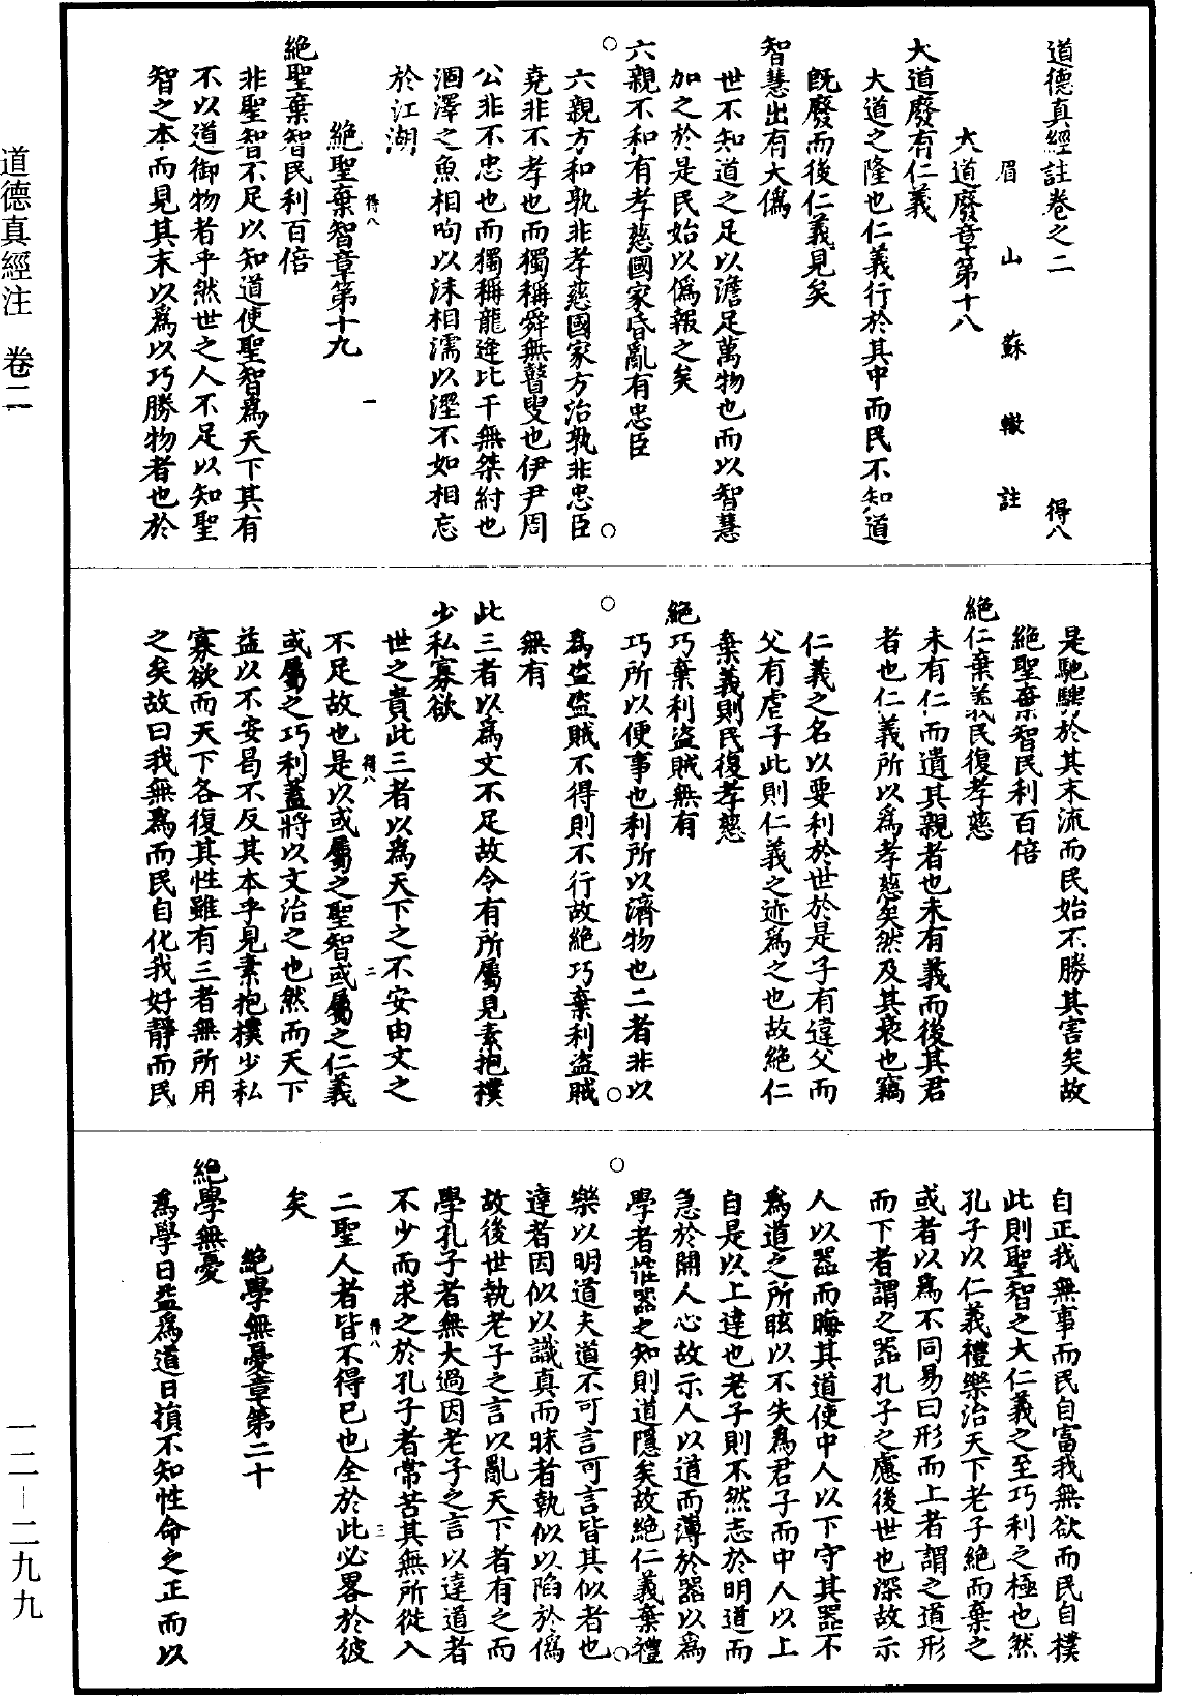 道德真經註卷之二　得八
眉山蘇轍註
大道廢章第十八
大道廢有仁義
大道之隆也仁義行於其中而民不知道
既廢而後仁義見矣
智慧出有大僞
世不知道之足以澹足萬物也而以智慧
加之於是民始以僞報之矣
六親不和有孝慈國家昏亂有忠臣
六親方和孰非孝慈國家方治孰非忠臣
堯非不孝也而獨稱舜無瞽叟也伊尹周
公非不忠也而獨稱龍逄比干無桀紂也
涸澤之魚相呴以沫相濡以溼不如相忘
於江湖
得八　一
絕聖棄智章第十九
絕聖棄智民利百倍
非聖智不足以知道使聖智爲天下其有
不以道御物者乎然世之人不足以知聖
智之本而見其末以爲以巧勝物者也於
是馳騁於其末流而民始不勝其害矣故
絕聖棄智民利百倍
絕仁棄義民復孝慈
未有仁而遺其親者也未有義而後其君
者也仁義所以爲孝慈矣然及其衰也竊
仁義之名以要利於世於是子有違父而
父有虐子此則仁義之迹爲之也故絕仁
棄義則民復孝慈
絕巧棄利盜賊無有
巧所以便事也利所以濟物也二者非以
爲盜盜賊不得則不行故絕巧棄利盜賊
無有
此三者以爲文不足故令有所屬見素抱樸
少私寡欲
世之貴此三者以爲天下之不安由文之
得八　二
不足故也是以或屬之聖智或屬之仁義
或屬之巧利蓋將以文治之也然而天下
益以不安曷不反其本乎見素抱樸少私
寡欲而天下各復其性雖有三者無所用
之矣故曰我無爲而民自化我好靜而民
自正我無事而民自富我無欲而民自樸
此則聖智之大仁義之至巧利之極也然
孔子以仁義禮樂治天下老子絕而棄之
或者以爲不同易曰形而上者謂之道形
而下者謂之器孔子之慮後世也深故示
人以器而晦其道使中人以下守其器不
爲道之所眩以不失爲君子而中人以上
自是以上達也老子則不然志於明道而
急於開人心故示人以道而薄於器以爲
學者惟器之知則道隱矣故絕仁義棄禮
樂以明道夫道不可言可言皆其似者也
達者因似以識真而昧者執似以陷於僞
故後世執老子之言以亂天下者有之而
學孔子者無大過因老子之言以達道者
不少而求之於孔子者常苦其無所從入
得八　三
二聖人者皆不得已也全於此必畧於彼
矣
絕學無憂章第二十
絕學無憂
爲學日益爲道日損不知性命之正而以
道德真經注　卷二
一二—二九九